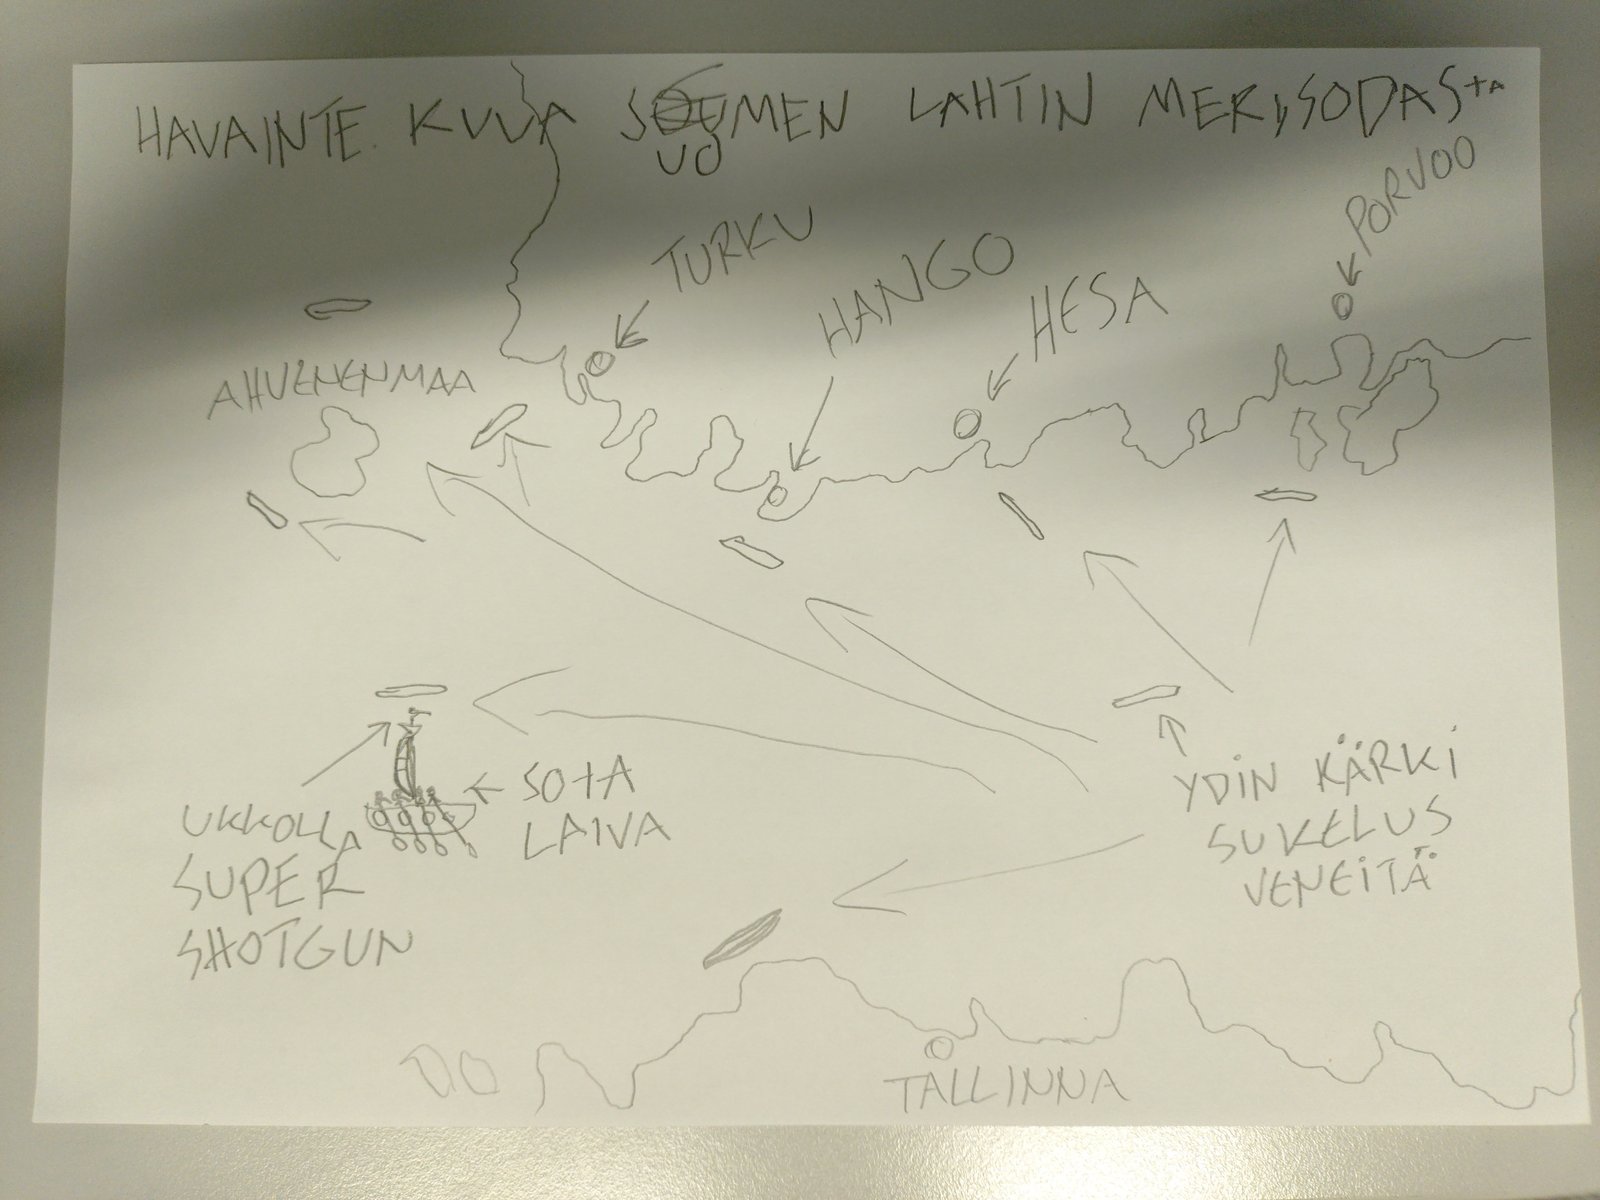 HAVAINTE KUVA SUOMEN LAHTIN MERISODASTA
PORVOO
TURKU
HANGO
HESA
AHVENENMAA
SOTA
LAIVA
UKKOLLA
SUPER
SHOTGUN
YDIN KÄRKI
SUKELUS
VENEITÄ
TALLINNA